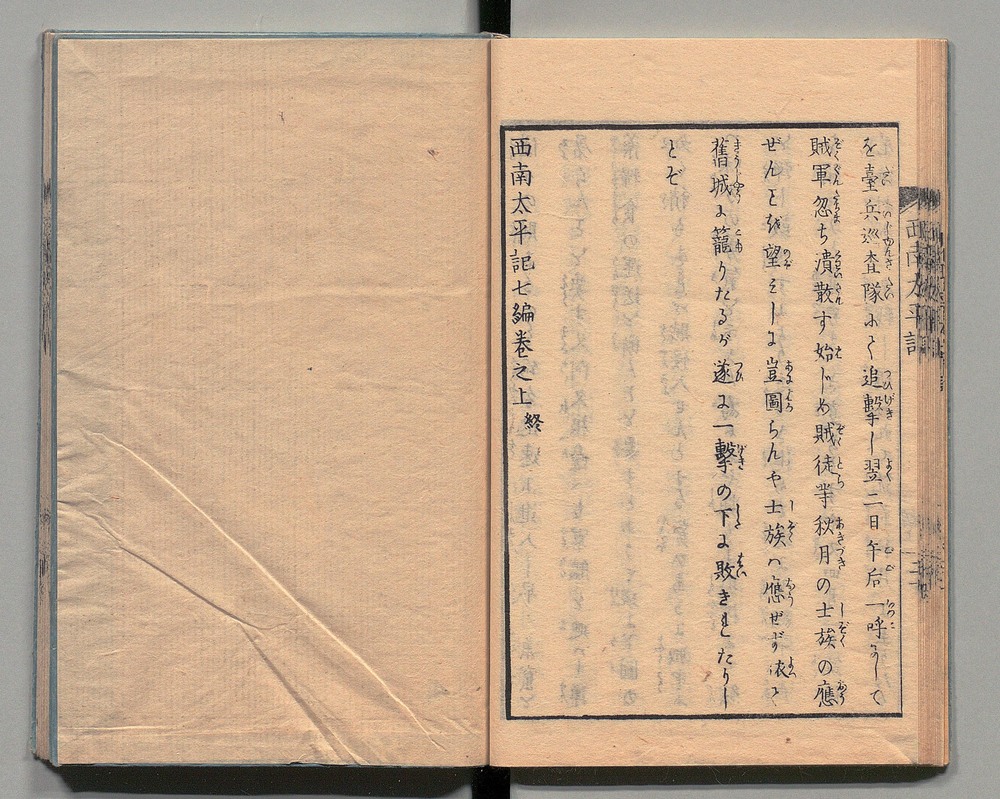 を臺兵巡査隊ふて追撃し翌二日午后一呼にして
賊軍忽ち潰散す始じめ賊徒等秋月の士族の應
ぜんとを望みしに豈圖らんや士族ハ應ぜず依て
舊城に籠りたるが遂に一撃の下に敗きしたりし
とぞ
西南太平記七編巻之上 終
西南太平記